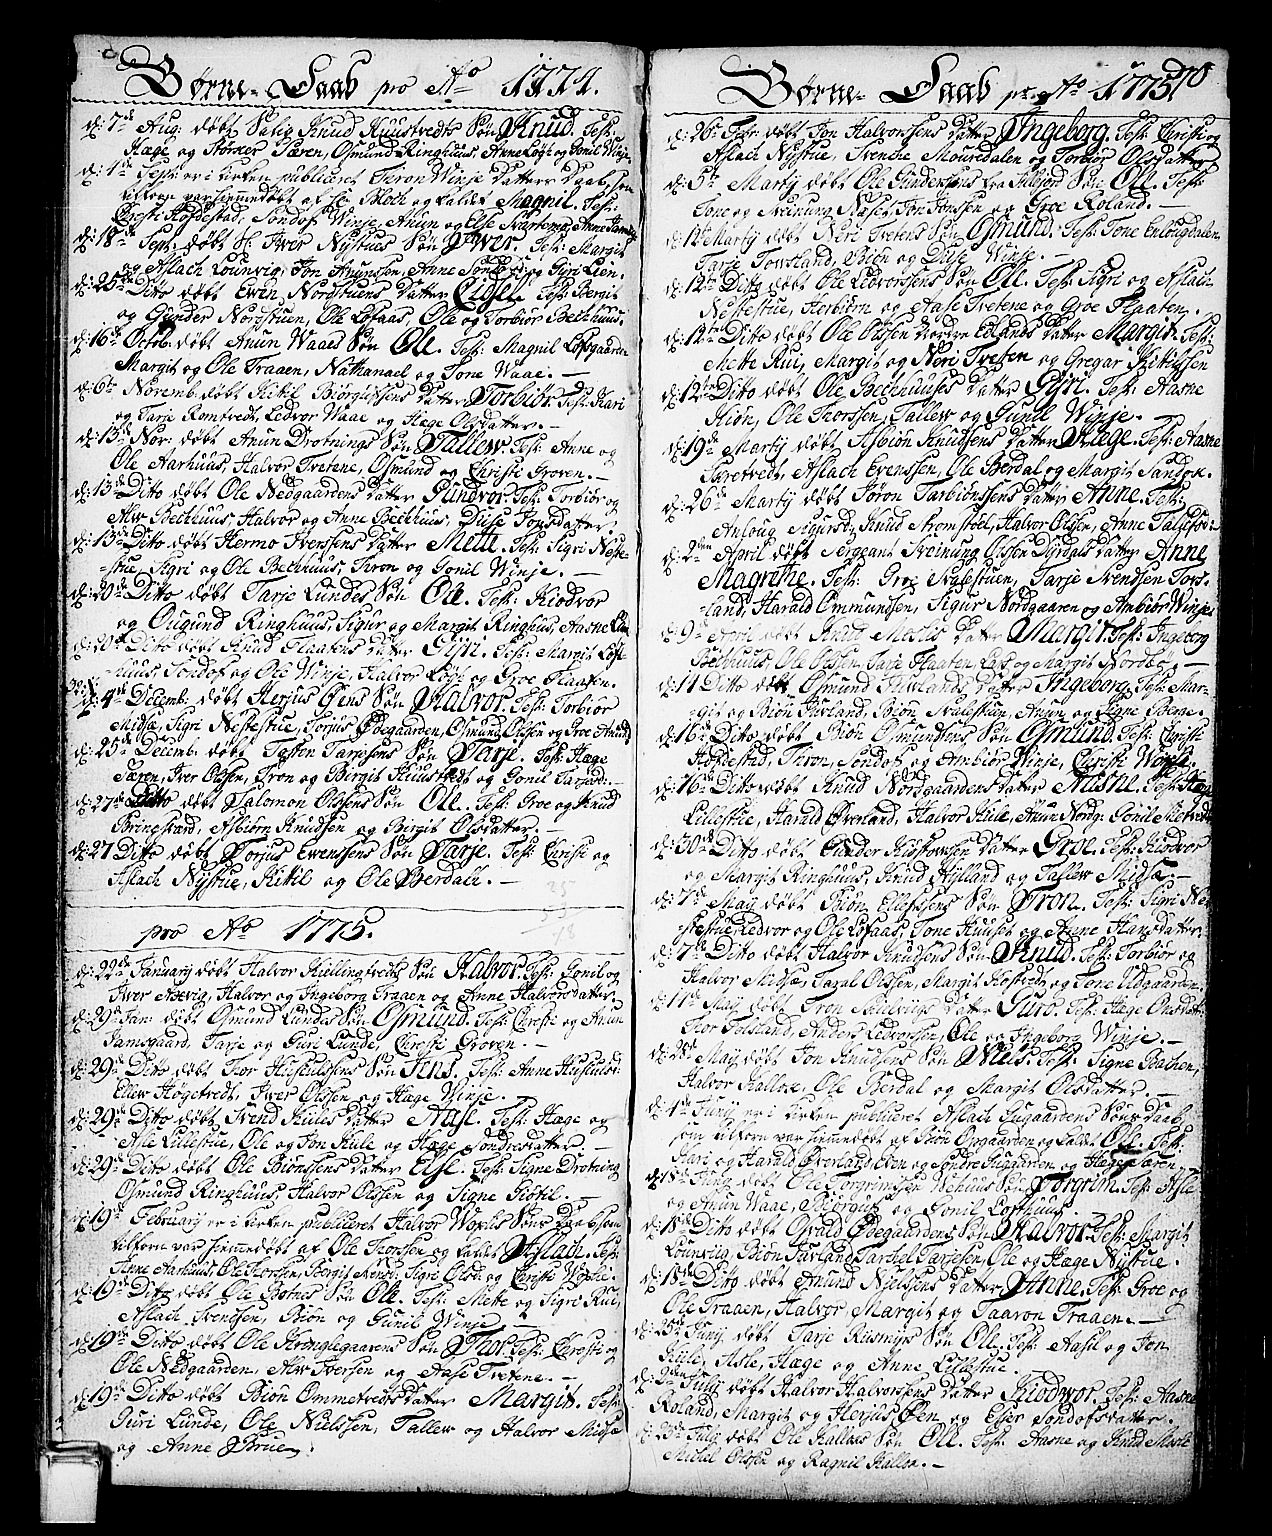 Børne-Daab pro Aō 1774.
d: 7de Aug: døbt Salig Knud Kuustvedts Søn Knud. Test:
Hæge og Størker Særen, Osmund Ringhuus, Anne Løyt og Gonil Winje
d: 4de Sept: er i kirken publiceret Thron Winje Datters Daab, som
tilforn var hiemmedøbt af Hr. Bloch og kaldet Magnil. Test:
Christi Hofdestad, Sondof Winje, Anum og Else Svartemo, Anne
d: 18de Sept: døbt Sl. Iwer Nystues Søn Iwer. Test: Margit
og Aslach Lounvig, Jon Anunsen, Anne og Gyri Lien.
d: 25de Ditto døbt Ewen Nordstuens Datter Eidsel. Test: Bergit
og Gunder Nordstuen, Ole Lofaas, Ole og Torbiør Bechhuus.
d: 16de Octob: døbt Anun Waaes Søn Ole. Test: Magnil Lofsgaarden
Margit og Ole Traaen, Nathanael og Tone Waae. —
d: 6te Novemb: døbt Kitil Biørgufsens Datter Torbiør Test: Kari
og Tarje Romtvedt, Ledvor Waae og Hæge Olsdatter. —
d: 13de Nov: døbt Anun Drotnings Søn Tallew. Test: Anne og
Ole Aarhuus, Halvor Tvetene, Osmund og Christi Groven. —
d: 13de Ditto døbt Ole Nedgaardens Datter Gundvor. Test: Torbiør og
Alw Bechhuus, Halvor og Anne Bechhuus, Duse Jonsdatter.
d: 13de Ditto døbt Hermo Ivenssens Datter Mette. Test: Sigri Neste-
-stue, Sigri og Ole Bechhuus, Thron og Gonil Winje. —
d: 20de Ditto døbt Tarje Lundes Søn Ole. Test: Kiodvor
og Ougund Ringhuus, Sigur og Margit Ringhus, Aasne Lien
d: 20de Ditto døbt Knud Flaatens Datter Gyri. Test: Margit Løyt-
-huus, Sondof og Ole Winje, Halvor Løyt og Groe Flaaten.
d: 4de Decemb: døbt Herjus Øens Søn Halvor. Test: Torbiør
Midsæ, Sigri Nestestue, Torjus Ødegaarden, Osmund Olssen og Groe
d: 25de Decemb: døbt Tasten Tarjesens Søn Tarje. Test: Hæge
Særen, Iver Olssen, Tron og Birgit Kuustvedt og Gonil Tarjesd: —
d: 27de Ditto døbt Salomon Olssens Søn Ole. Test: Groe og Knud
Bringsværd, Asbiørn Knudssen og Birgit Olsdatter. —
d: 27 Ditto døbt Torjus Ewenssens Søn Tarje. Test: Christi og
Aslach Nystue, Kitil og Ole Berdall. —
pro Aō 1775.
d: 22de January døbt Halvor Kiellingtvedts Søn Halvor. Test: Gonil og
Iwer Axevig, Halvor og Ingeborg Traaen og Anne Halvorsdatter.
d: 29de Jan: døbt Osmund Lundes Søn Osmund. Test: Christi og Anun
Samsgaard, Tarje og Guri Lunde, Christi Groven. —
d: 29de Ditto døbt Thor Huskuldsens Søn Jens. Test: Anne
Ellew Høgetvedt, Iwer Olssen og Hæge Winje. —
d: 29de Ditto døbt Svend Hules Datter Aase. Test: Hæge og
Asle Lillestue, Ole og Jon Hule og Hæge Sondresdatter —
d: 29de Ditto døbt Ole Biønssens Datter Else. Test: Signe Drotning
Osmund Ringhuus, Halvor Olssen og Signe Giotil. —
d: 19de February er i kirken publiceret Halvor Woxlis Søns Daab som
tilforn var hiemmedøbt af Ole Thorssen og kaldet Aslach. Test:
Anne Aarhuus, Ole Thorssen, Birgit Svends: Sigri Olsd: og Christi Woxlie.
d: 19de Ditto døbt Ole Botnes Søn Ole. Test: Mette og Sigri Rui,
Aslach Svendsen, Biøn og Gunil Winje —
d: 19de Ditto døbt Ole Kronglegaarens Søn Thor. Test: Christi og
Ole Nedgaarden, Alw Iversen og Aase Tvetene. —
d: 19de Ditto døbt Biøn Ommetvedts Datter Margit. Test:
Guri Lunde, Ole Nielssen, Tallew og Halvor Midsæ
og Anne Brue.
Børne-Daab pro Aō 1775. 70
d: 26de Febr: døbt Jon Halvorssens Datter Ingeborg. Test: Christi og
Aslach Nystue, Svenche Mouredalen og Torbiør Olsdatter
d: 5te Marty døbt Ole Gundersens fra Hilliord Søn Ole. Test:
Tone og Sveinung Næse, Jon Jonssen og Groe Roland. —
d: 12te Marty døbt Neri Tvetens Søn Osmund. Test: Tone Enlougdalen
Tarje Towsland, Biøn og Duse Winje. —
d: 12te Ditto døbt Ole Ledvorssens Søn Ole. Test: Sigri og Aslach
Nestestue, Herbiørn og Aase Tvetene og Groe Flaaten.
d: 12te Ditto døbt Ole Olssen Nordre Lislands Datter Margit. Test:
Mette Rui, Margit og Neri Tveten og Gregar Kittilssen
d: 12te Ditto døbt Ole Bechhuuses Datter Gyri. Test: Aasne
Hiøn, Ole Thorssen, Tallew og Gunil Winje. —
d: 19de Marty døbt Asbiøn Knudsens Datter Hæge. Test: Aasne
Sæetvedt, Aslach Evenssen, Ole Berdal og Margit Sandok.
d: 26de Marty døbt Jøron Tarbiønssens Datter Anne. Test:
Anloug Sigursd: Knud Strømstoel, Halvor Olssen, Anne Talefsd:
d: 2den April døbt Sergeant Sveinung Olssen Dyrdals Datter Anne
Magrethe. Test: Groe Svalestuen, Tarje Svendsen Tors-
-land, Harald Ommundsen, Sigur Nordgaaren og Ambiør Winje
d: 9de April døbt Knud Mostis Datter Margit. Test: Ingeborg
Bechhuus, Ole Olssen, Tarje Flaaten, Lars og Margit Nordbøe. —
d: 14 Ditto døbt Osmund Juvlands Datter Ingeborg. Test: Mar-
-git og Biøn Juvland, Biøn Svalestuen, Anun og Signe Berge.
d: 16de Ditto døbt Biøn Osmundsens Søn Osmund. Test: Christi
Hofdestad, Thron, Sondof og Ambiør Winje, Christi Woxli.
d: 16de Ditto døbt Knud Nordgaardens Datter Aasne. Test: Hæge
Lillestue, Harald Øverland, Halvor Hule, Anun Nordg: Gonil
d: 30de Ditto døbt Gunder Kistowsen Datter Groe. Test: Kiodvor
og Margit Ringhuus, Knud Hylland og Tallew Midsæ. —
d: 7de May døbt Biøn Ellefssens Søn Tron. Test: Sigri Ne-
stestue, Ledvor og Ole Lofaas, Tone Huuset og Anne Hansdatter
d: 7de Ditto døbt Halvor Knudsens Søn Knud. Test: Torbiør og
Halvor Midsæ, Taral Olssen, Margit Hostvedt og Tone Ødgaarden.
d: 11te May døbt Tron Bechvigs Datter Guro. Test: Hæge Olsdatter
Thor Felstand, Anders Ledvorssen, Ole og Ingeborg Winje. —
d: 28de May døbt Jon Knudsens Søn Niels. Test: Signe Bachen,
Halvor Kalloe, Ole Berdal og Margit Olsdatter. —
d: 4de Juny er i kirken publiceret Aslach Øygaardens Søns Daab
som tilforn var hiemmedøbt af Biøn Øygaarden og kaldet Ole. Test:
Kari og Harald Øverland, Even og Søndre Øygarden og Hæge Særen
d: 18de Juny døbt Ole Torgrimssen Wehuus Søn Torgrim. Test: Asle
og Anun Waae, Biørguf og Gonil Lofthuus.
d: 18de Ditto døbt Øvald Ødegaardens Søn Halvor. Test: Margit
Lounviig, Biøn Juvland, Tarchel Tarjesen, Ole og Hæge Nystue.
d: 18de Ditto døbt Anund Nielssens Datter Anne. Test: Groe og
Ole Traaen, Halvor, Margit og Taaron Traaen. —
d: 25de Juny døbt Tarje Rusmyrs Søn Ole. Test: Aasil og Jon
Hule, Asle, Hæge og Anne Lillestue.
d: 2den July døbt Halvor Halvorssens Datter Kiodwor. Test: Aasne
Roland, Margit og Herjus Øen og Ejer Sondofsdatter.
d: 23de July døbt Ole Kalloes Søn Ole. Test: Aasne og Knud
Michel Olssen og Ragnil Kalloe. —